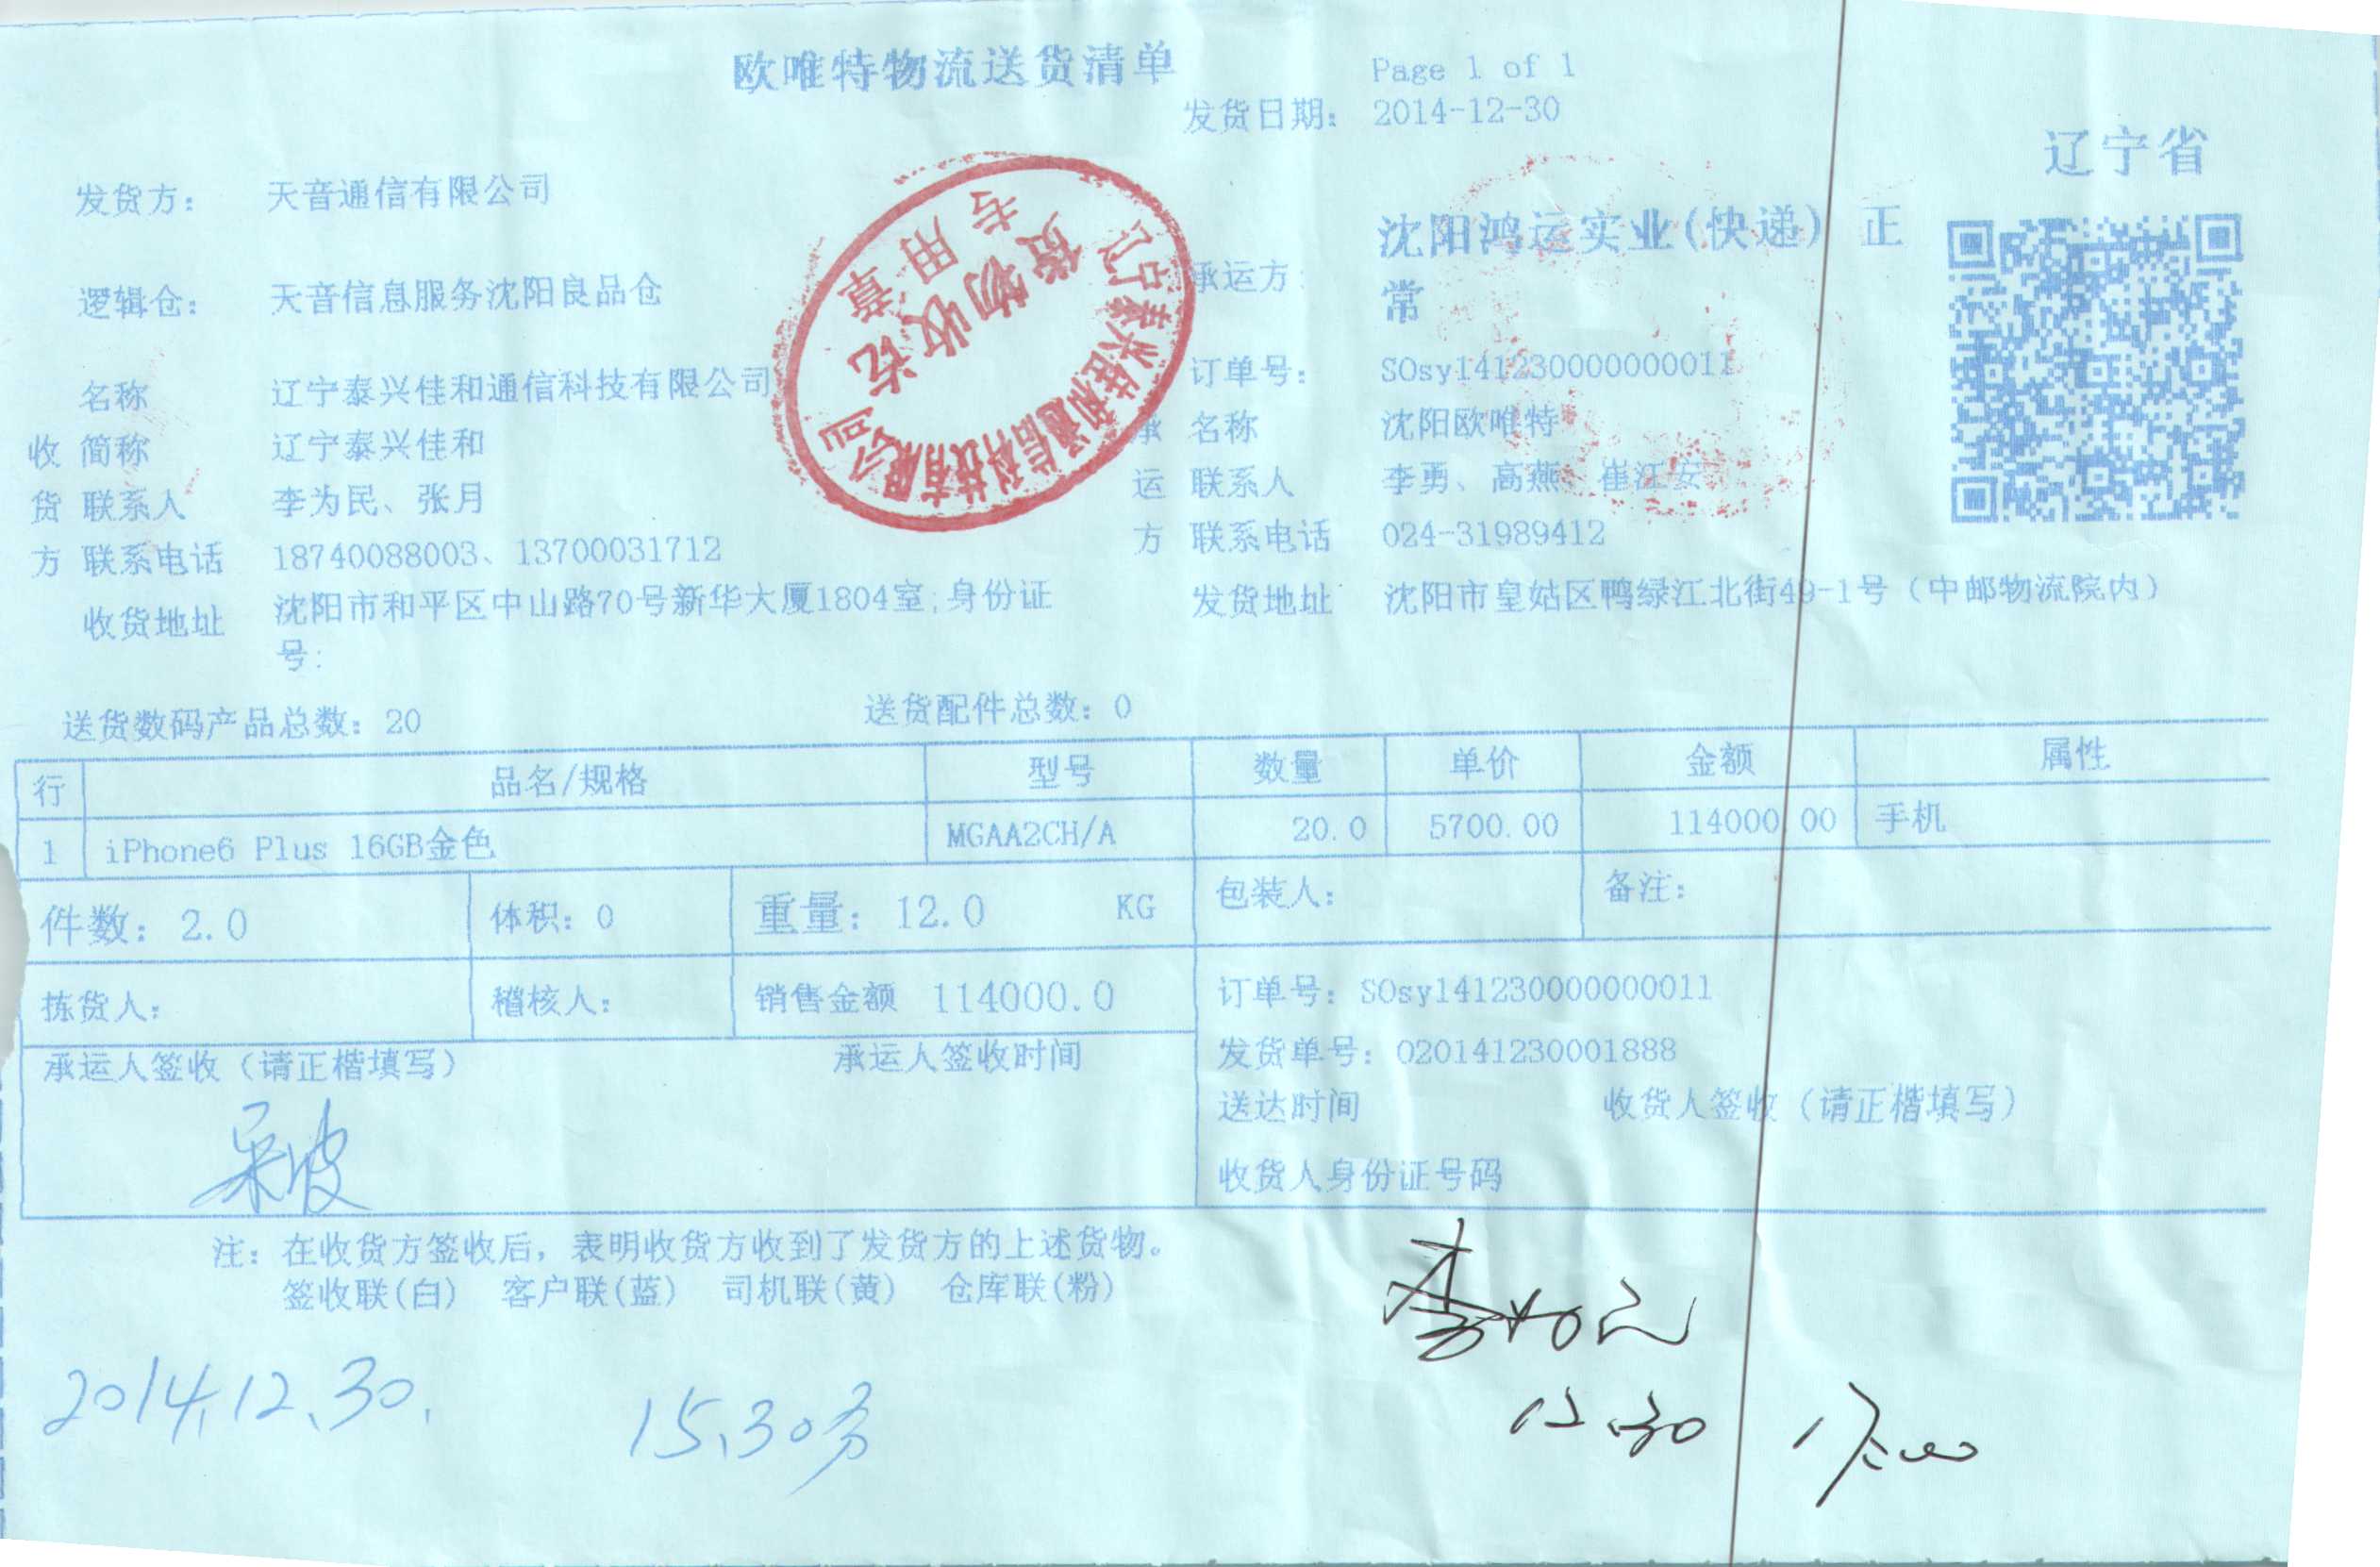 欧唯特物流送货清单
Page 1 of 1
发货日期： 2014-12-30
辽宁省
发货方： 天音通信有限公司
承运方： 沈阳鸿运实业(快递) 正常
逻辑仓： 天音信息服务沈阳良品仓
订单号： SOsy141230000000011
收货方
名称 辽宁泰兴佳和通信科技有限公司
简称 辽宁泰兴佳和
联系人 李为民、张月
联系电话 18740088003、13700031712
收货地址 沈阳市和平区中山路70号新华大厦1804室;身份证
号:
承运方
名称 沈阳欧唯特
联系人 李勇、高燕、崔江安
联系电话 024-31989412
发货地址 沈阳市皇姑区鸭绿江北街49-1号（中邮物流院内）
辽宁泰兴佳和通信科技有限公司
货物收讫
专用章
送货数码产品总数：20 送货配件总数：0
行 品名/规格 型号 数量 单价 金额 属性
1 iPhone6 Plus 16GB金色 MGAA2CH/A 20.0 5700.00 114000.00 手机
件数：2.0 体积：0 重量：12.0 KG 包装人： 备注：
拣货人： 稽核人： 销售金额 114000.0
订单号：SOsy141230000000011
承运人签收（请正楷填写） 承运人签收时间
发货单号：020141230001888
送达时间 收货人签收（请正楷填写）
收货人身份证号码
注：在收货方签收后，表明收货方收到了发货方的上述货物。
签收联(白) 客户联(蓝) 司机联(黄) 仓库联(粉)
2014.12.30.
15.30分
12.30 17:00